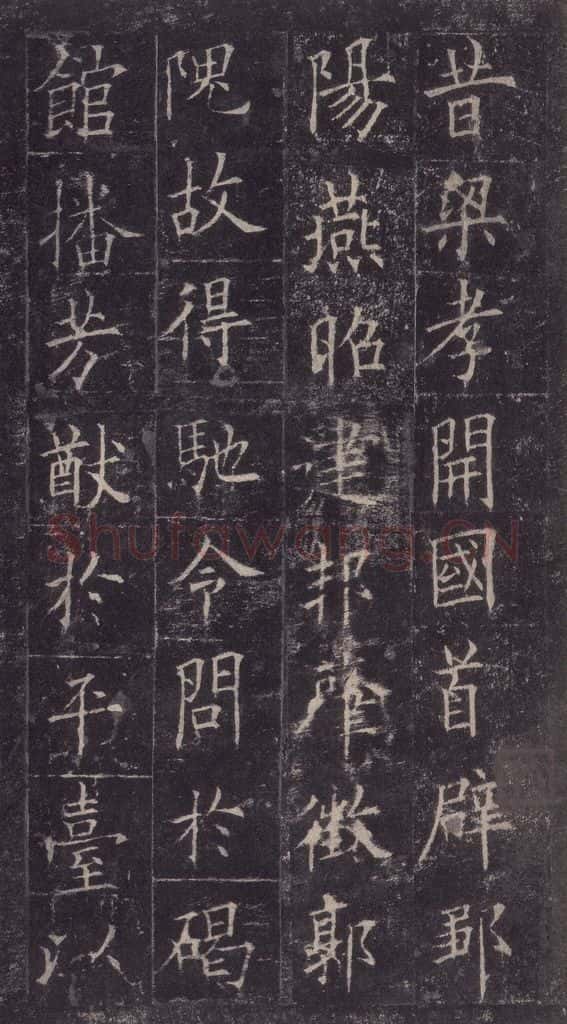 昔梁孝開國首辟鄒
陽燕昭建邦肇徵郭
隗故得馳令問於碣
館播芳猷於平臺以
Shufawang.CN